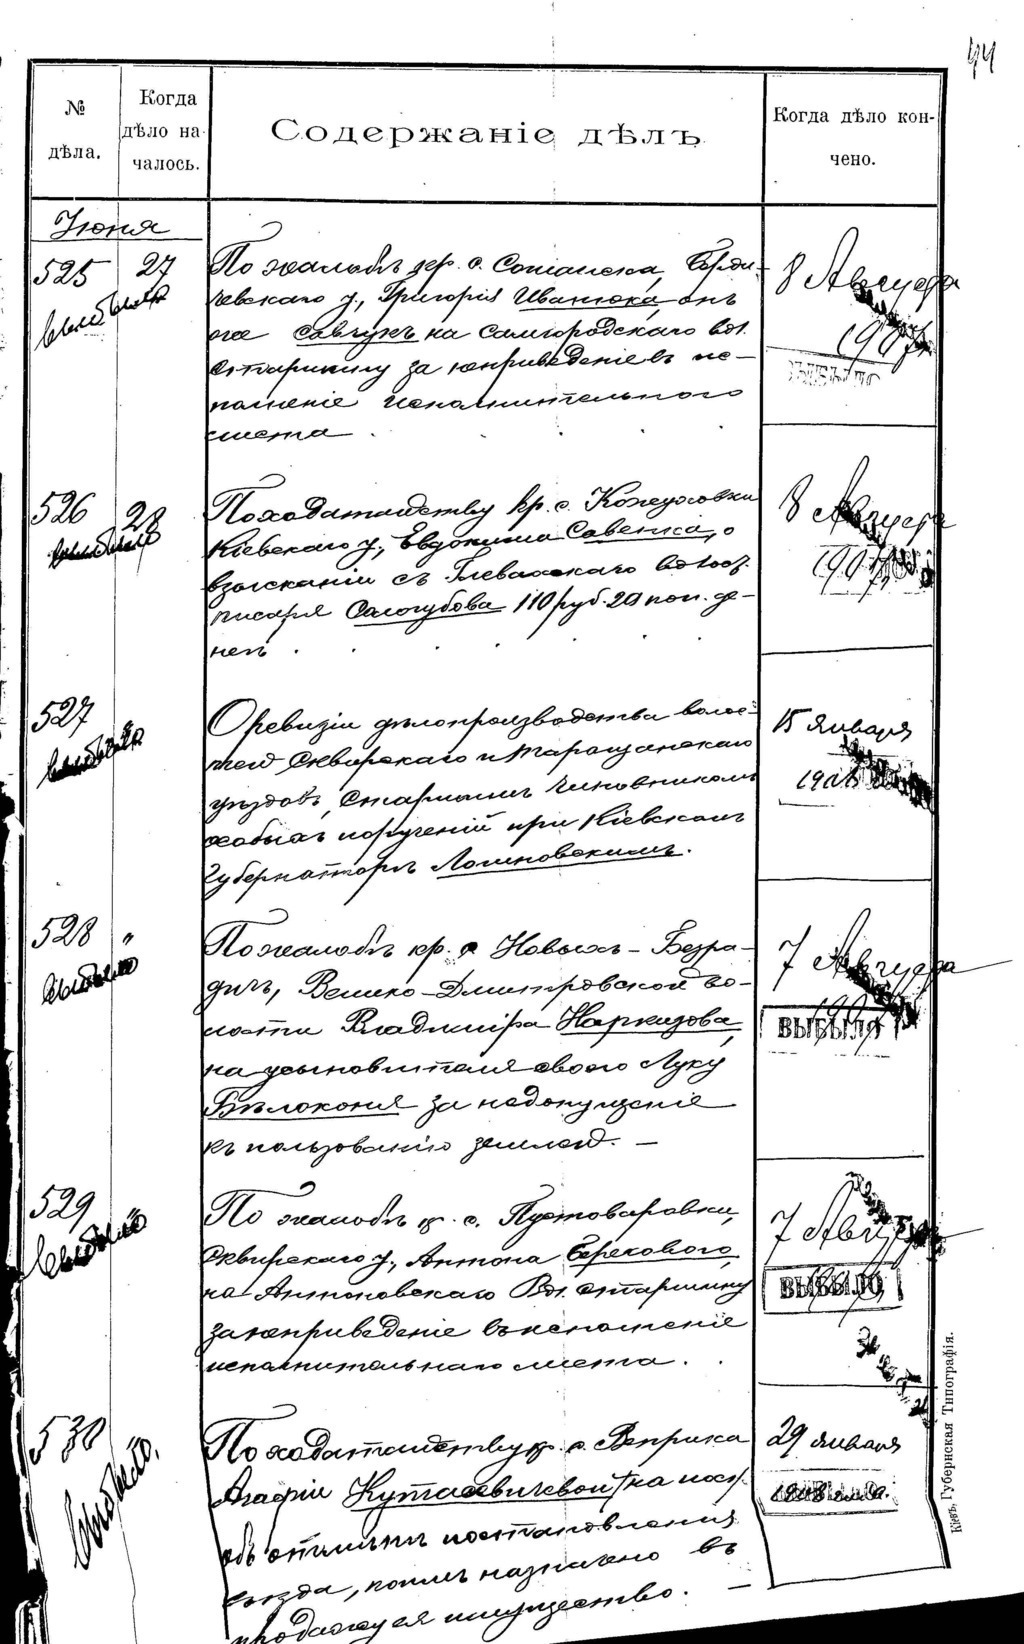 44
№ дѣла.
Когда дѣло на-
чалось.
Содержаніе дѣлъ
Когда дѣло кон-
чено.
Июня
525 27 По жалобѣ кр. с. Берди- 8 Августа
чевскаго у., Григорія Иванюка, онъ
же Савчукъ на Самгородскаго вол. 1907
старшину за неприведеніе въ ис- ВЫБЫЛО
полненіе исполнительнаго
листа
выбыло
526 28 По ходатайству кр. с. Кожуховки 8 Августа
Кіевскаго у., Евдокима Савенка, о 1907
взысканіи съ Глевахскаго волост.
писаря Сологубова 110 руб. 20 коп. де-
негъ
выбыло
527 О ревизіи дѣлопроизводства волос- 15 января
тей Сквирскаго и Таращанскаго
уѣздовъ, старшимъ чиновникомъ 1908
особыхъ порученій при Кіевскомъ
Губернаторѣ
выбыло
528 " По жалобѣ кр. с. Новыхъ-Безра- 7 Августа
дичъ, Велико-Дмитровской во- 1907
лости Владиміра Наркизова, ВЫБЫЛО
на усыновителя своего Луку
Бѣлоконя за недопущеніе
къ пользованію землей. —
выбыло
529 " По жалобѣ кр. с. Пустоваровки, 7 Августа
Сквирскаго у., Антона Берекового, 1907
на Антоновскаго Вол. старшину ВЫБЫЛО
за неприведеніе въ исполненіе
исполнительнаго листа.
выбыло
530 По ходатайству кр. с. Веприка 29 января
Агафіи 1908 года.
объ отмѣнѣ постановленія
съѣзда, коимъ назначено въ
продажу ея имущество. —
выбыло.
Кіевъ, Губернская Типографія.